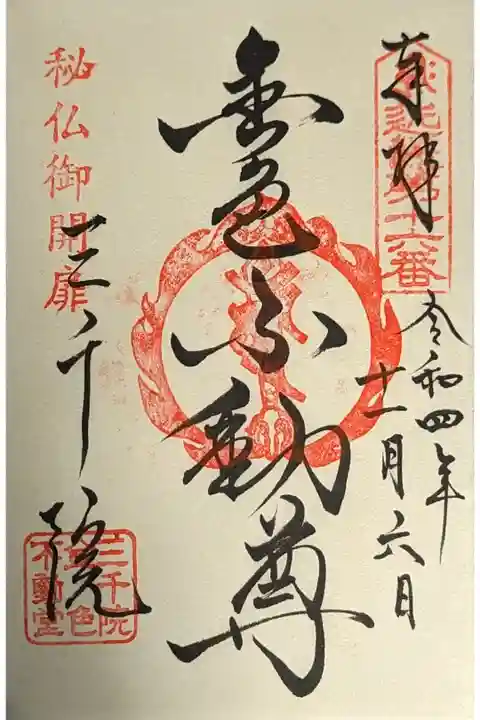 奉拝
第十六番
令和四年
十一月六日
金色不動尊
秘仏御開扉
三千院
三千院
金色
不動堂